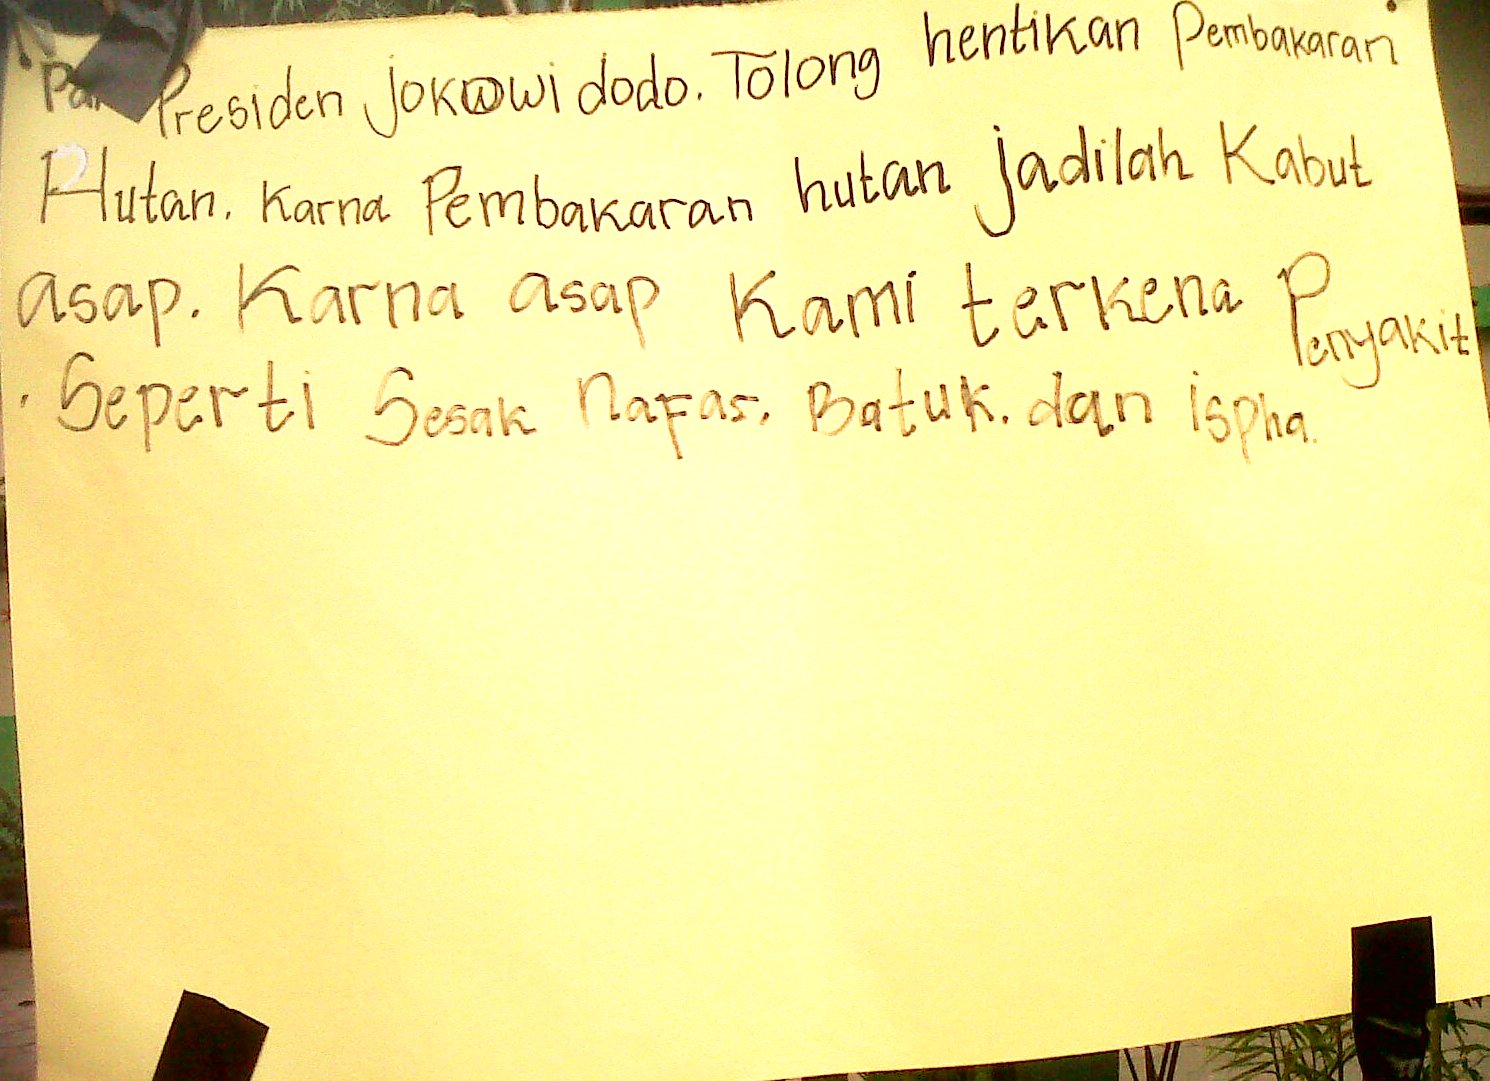 Pak Presiden jokowwi dodo. Tolong hentikan Pembakaran
Hutan. Karna Pembakaran hutan jadilah Kabut
asap. Karna asap Kami terkena Penyakit
. Seperti Sesak nafas. Batuk. dan ispha.